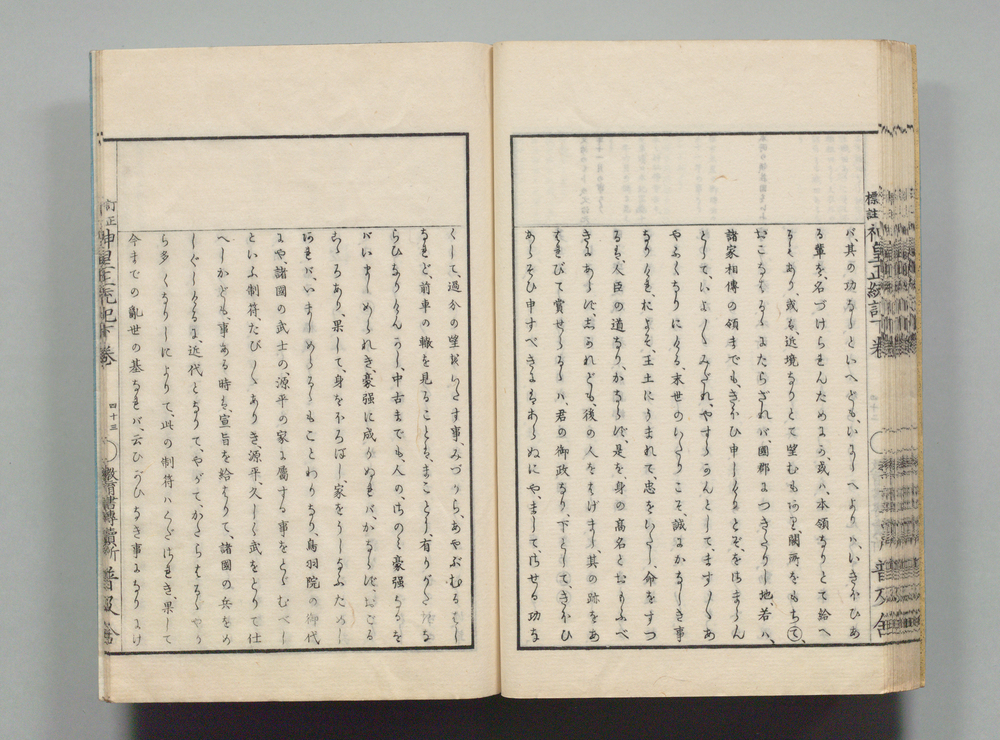 バ、其の功なしといへども、いにしへよりハ、いきほひあ
る輩を、名づけられんためにか、或ハ、本領なりとて給へ
るもあり、或は、近境なりとて望むもあり、闕所をもちて、
おこなはるゝにたらざれバ、國郡につきたりし地、若ハ、
諸家相傳の領までも、きほひ申しけりとぞ、をさまらん
として、いよ〳〵みだれ、やすからんとして、ます〳〵あ
やふくなりにける、末世のいたりこそ、誠にかなしき事
なりけれ、およそ、王土にうまれて、忠をいたし、命をすつ
るは、人臣の道なり、かならず、是を、身の高名とおもふべ
きにあらず、しかれども、後の人をはげまし、其の跡をあ
はれびて賞せらるゝハ、君の御政なり、下として、きほひ
あらそひ申すべきにはあらぬにや、まして、させる功な
くして、過分の望をいたす事、みづから、あやぶむるはし
なれど、前車の轍を見ることは、まことに、有りがたき習な
らひなりけんかし、中古までも、人の、さのみ、豪強なるを
バいましめられき、豪強に成りぬれバ、かならず、おごる
こゝろあり、果して、身をほろぼし、家をうしなふためし
あれバ、いましめらるゝもことわりなり、鳥羽院の御代
にや、諸國の武士の、源平の家に屬する事をとゞむべし
といふ制符、たび〳〵ありき、源平、久しく武をとりて仕
へしかども、事ある時は、宣旨を給はりて、諸國の兵をめ
しぐしけるに、近代となりて、やがて、かたらはるゝやか
ら多くなりしによりて、此の制符ハくだされき、果して、
今までの亂世の基なれバ、云ひがひなき事になりにけ
標註
神皇正統記下卷
普及舍
訂正
神皇正統記下卷
四十三
教育書專賣所 普及舍